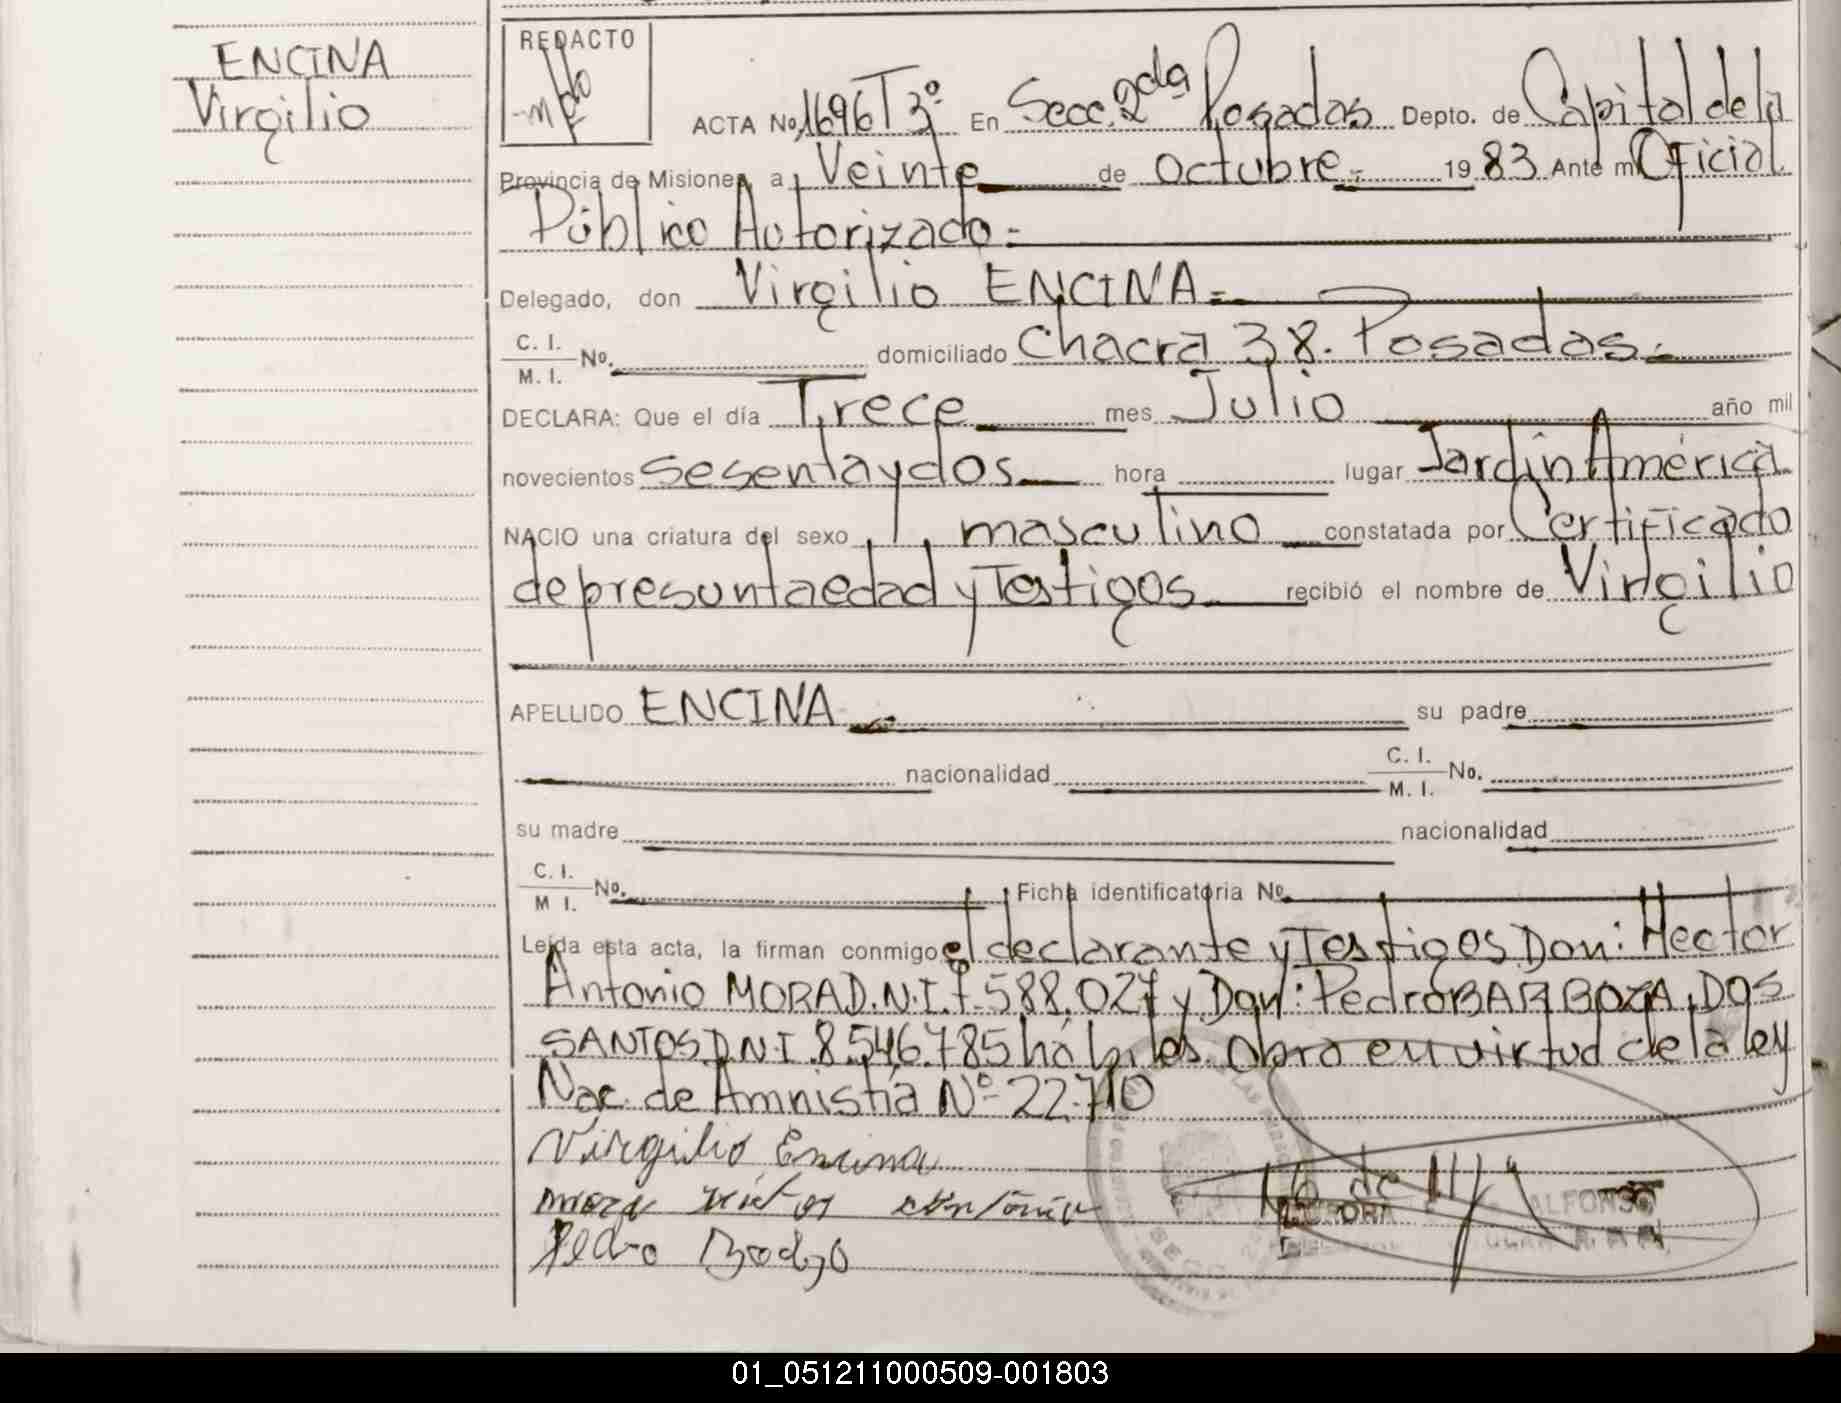 ENCINA
Virgilio
REDACTO
ACTA No. 1696 T 3º En Secc. 2da Posadas Depto. de Capital de la
Provincia de Misiones, a Veinte de octubre.- 1983 Ante mi Oficial
Público Autorizado.-
Delegado, don Virgilio ENCINA.-
C. I.
M. I. No. domiciliado Chacra 38. Posadas.-
DECLARA: Que el día Trece mes Julio año mil
novecientos sesenta y dos hora lugar Jardín América
NACIO una criatura del sexo masculino constatada por Certificado
de presunta edad y Testigos recibió el nombre de Virgilio
APELLIDO ENCINA su padre
nacionalidad C. I. M. I. No.
su madre nacionalidad
C. I. M I. No. Ficha identificatoria No.
Leída esta acta, la firman conmigo el declarante y Testigos Don: Hector
Antonio MORA D.N.I. 7.588.027 y Don: Pedro BARBOZA DOS
SANTOS D.N.I 8.546.785 hábiles. Obro en virtud de la ley
Nac. de Amnistía Nº 22.710
Virgilio Encina
Pedro
SECC.
ALFONSO
01_051211000509-001803